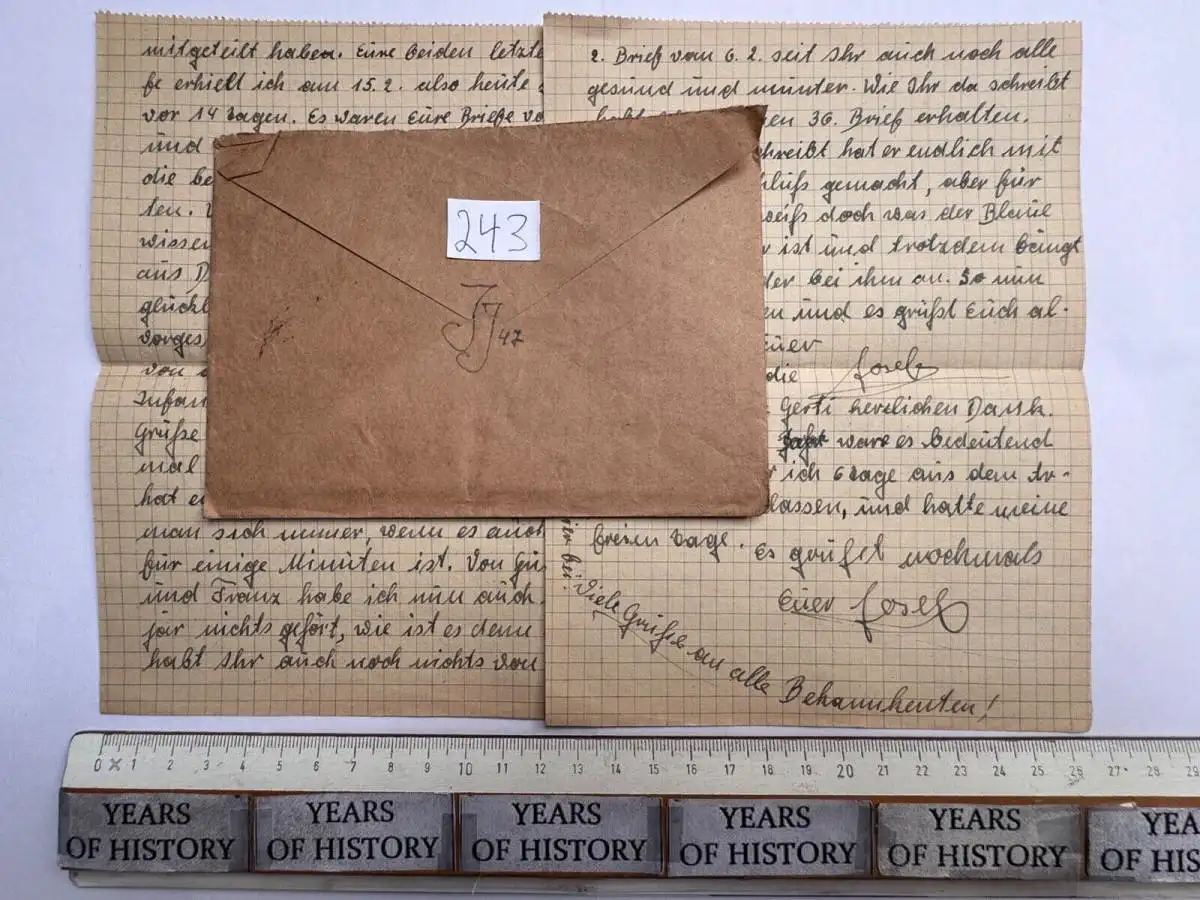 mitgeteilt haben. Eure beiden letzte
fe erhielt ich am 15.2. also heute
vor 14 Tagen. Es waren Eure Briefe vo
und
die be
ten.
wissen
aus D
glückl
vorges
von
Infan
Grüße
mal
hat er
man sich immer, wenn es auch
für einige Minuten ist. Von
und Franz habe ich nun auch
jar nichts gehört, wie ist es denn
habt Ihr auch noch nichts von
2. Brief vom 6.2. seit Ihr auch noch alle
gesund und munter. Wie Ihr da schreibt
en 36. Brief erhalten.
hreibt hat er endlich mit
hluß gemacht, aber für
weiß doch was der Blaue
r ist und trotzdem bängt
der bei ihm an. So nun
en und es grüßt Euch al-
Euer
die Josef
Gerti herzlichen Dank.
ware es bedeutend
r ich 6 Tage aus dem Ar-
lassen, und hatte meine
freien Tage. Es grüßt nochmals
Euer Josef
Viele Grüße an alle Bekannkenten!
ier bei.
243
JJ 47
0 x 1 2 3 4 5 6 7 8 9 10 11 12 13 14 15 16 17 18 19 20 21 22 23 24 25 26 27 28 29
YEARS OF HISTORY YEARS OF HISTORY YEARS OF HISTORY YEARS OF HISTORY YEARS OF HISTORY YEA
OF HI